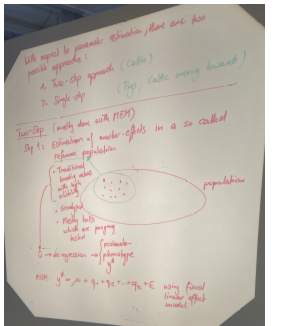 With respect to parameter estimation, there are two
possible approaches:
1. Two-step approach (Cattle)
2. Single-step (Pigs, Cattle moving towards)
Two-Step (mostly done with MEM)
Step 1: Estimation of marker-effects in a so called
reference population
• Traditional
breeding value
with high
population
• Genotyped
• Mostly bulls
which are progeny
tested
→ deregression →
phenotype
y*
MEM: y* = μ + q₁ + q₂ + ... + qₖ + E using fixed
linear effect
model